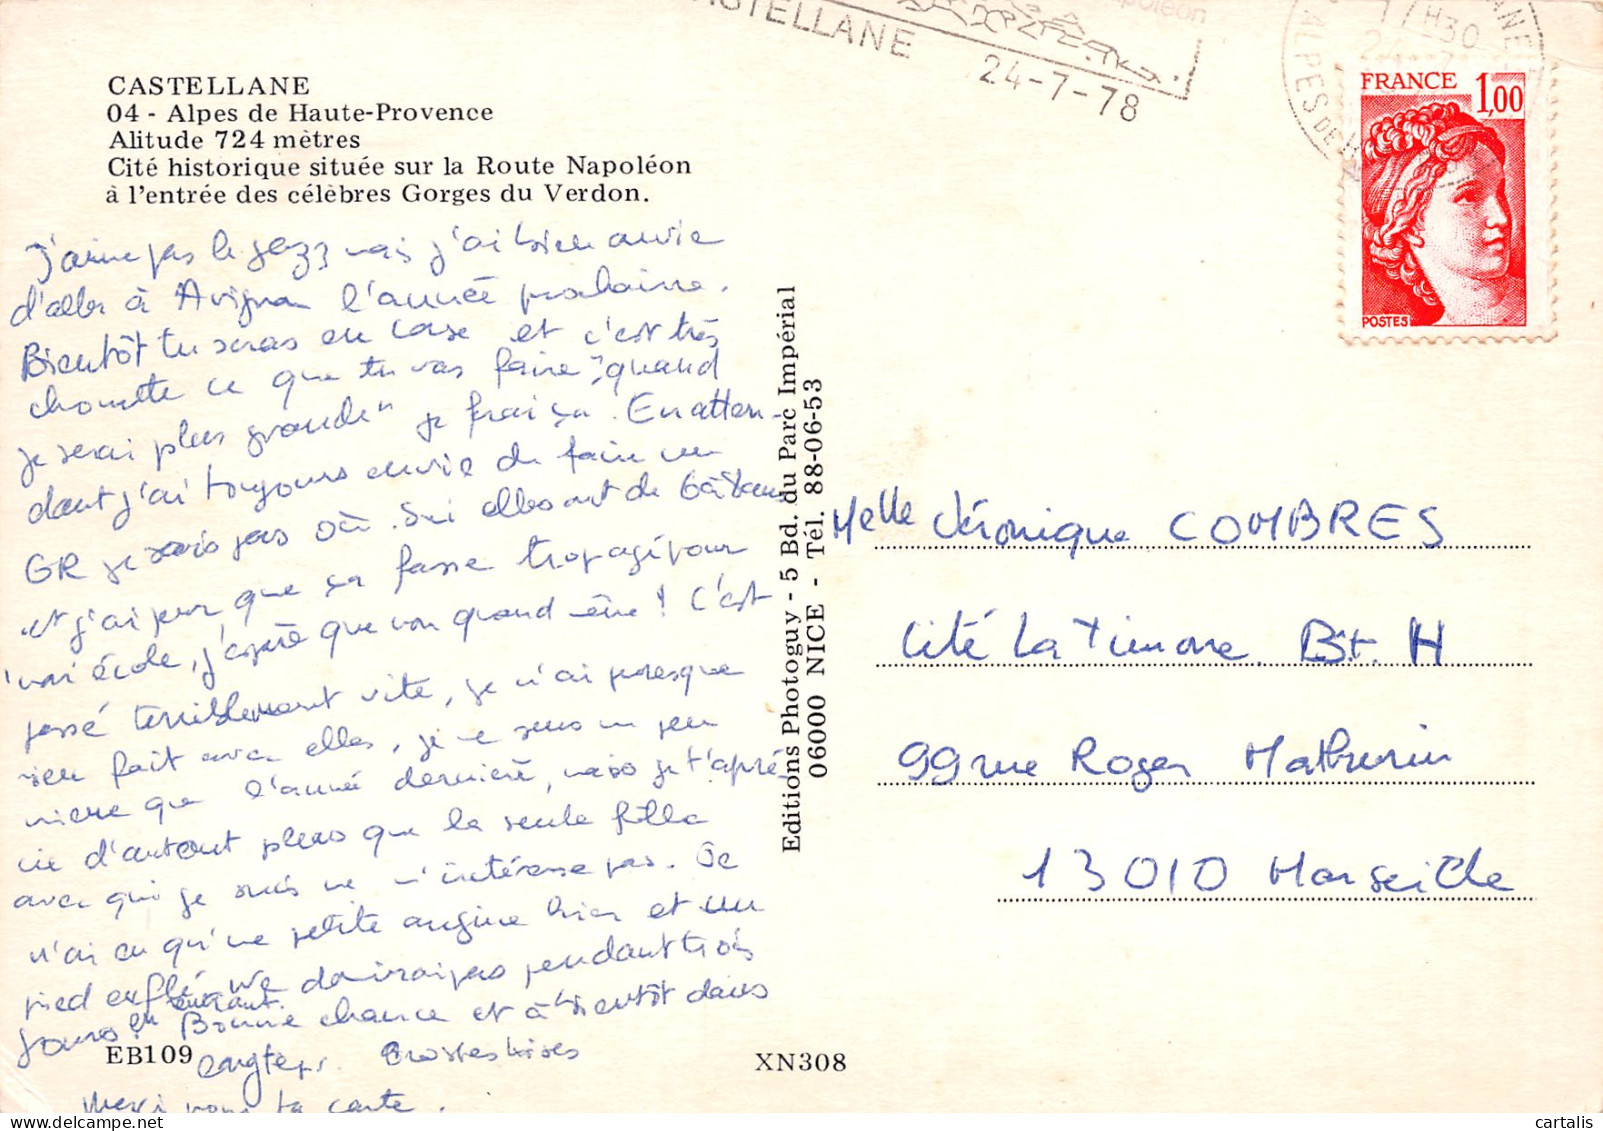 CASTELLANE
24-7-78
17H30
ALPES DE H
FRANCE 1,00
POSTES
CASTELLANE
04 - Alpes de Haute-Provence
Altitude 724 mètres
Cité historique située sur la Route Napoléon
à l'entrée des célèbres Gorges du Verdon.
J'aime pas le jazz mais j'ai bien envie
d'aller à Avignon l'année prochaine.
Bientôt tu seras en case et c'est très
chouette ce que tu vas faire, "quand
je serai plus grande" je ferai ça. En atten-
dant j'ai toujours envie de faire un
GR je sais pas où. elles ont de
et j'ai peur que ça fasse trop agé pour
école, j'espère que non quand même ! C'est
passé terriblement vite, je n'ai presque
rien fait avec elles, je me sens un peu
mieux que l'année dernière, mais je t'apré-
cie d'autant plus que la seule fille
avec qui je suis ne m'intéresse pas. Je
n'ai eu qu'une petite angine hier et un
pied enflé. pendant trois
jours ! Bonne chance et à bientôt dans
longtemps. Grosses bises
Merci pour ta carte.
Editions Photoguy - 5 Bd. du Parc Impérial
06000 NICE - Tél. 88-06-53
Melle Véronique COMBRES
Cité La Timone Bt. H
99 rue Roger Mathurin
13010 Marseille
EB109
XN308
cartalis